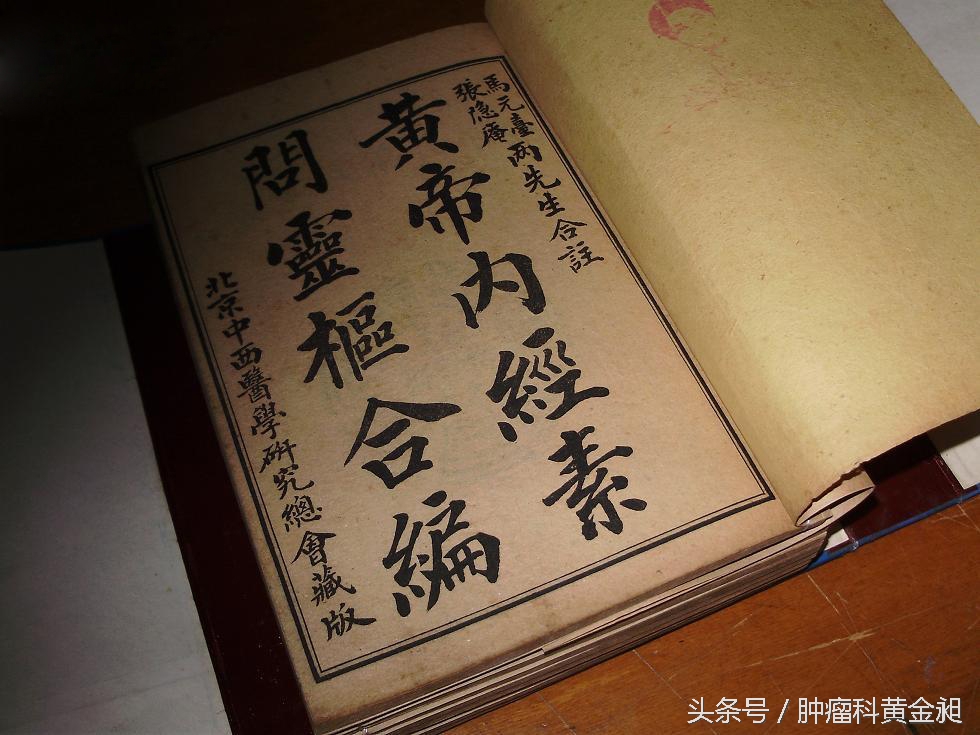 馬元臺
張隐庵
两先生合註
黄帝内經素
問靈樞合編
北京中西醫學研究總會藏版
头条号 / 肿瘤科黄金昶